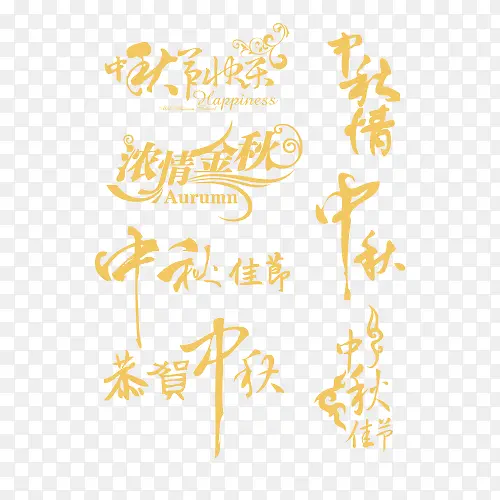 中秋节快乐
Happiness
浓情金秋
Aurumn
中秋佳節
恭賀中秋
中秋情
中秋
中秋
佳节